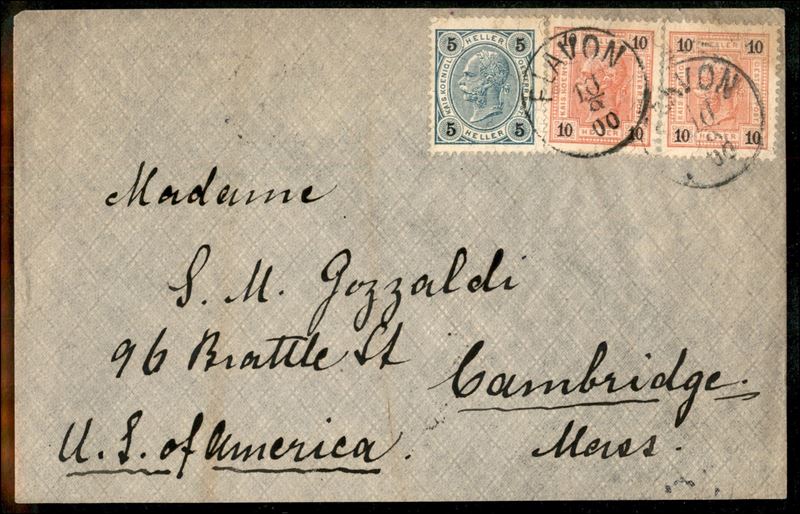 5 5
HELLER
5 5
HELLER
10 10
10 10
HELLER
10 10
HELLER
10 10
FLAVON
10
8
00
FLAVON
10
00
Madame
S. M. Gozzaldi
96 Brattle St
Cambridge.
U. S. of America.
Mass.